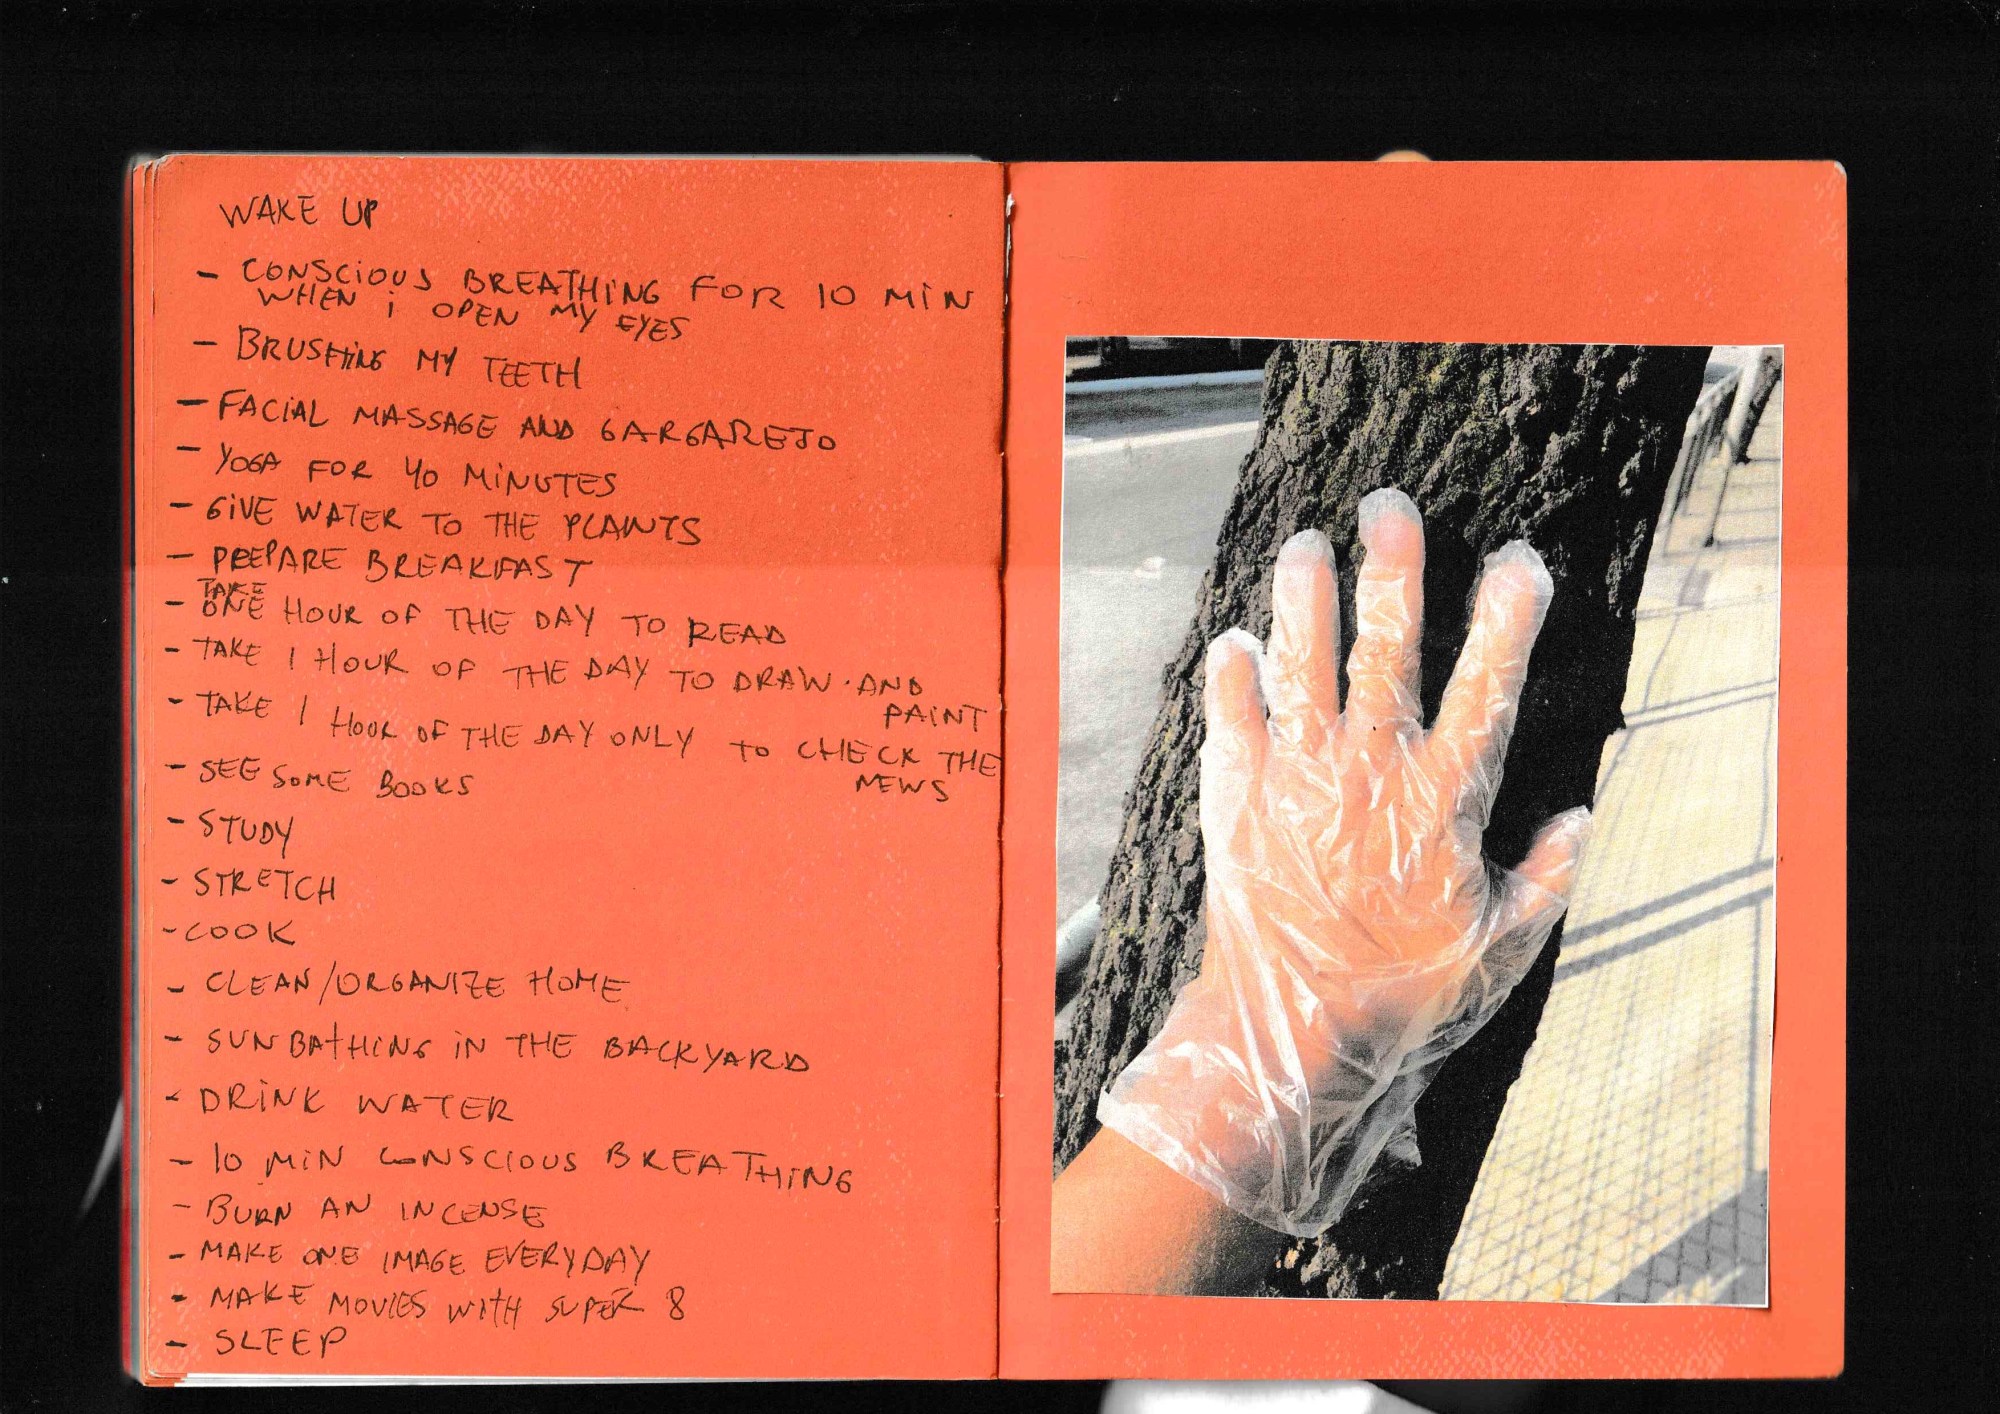 WAKE UP
- CONSCIOUS BREATHING FOR 10 MIN
WHEN i OPEN MY EYES
- BRUSHING MY TEETH
- FACIAL MASSAGE AND GARGAREJO
- YOGA FOR 40 MINUTES
- GIVE WATER TO THE PLANTS
- PREPARE BREAKFAST
TAKE
- ONE HOUR OF THE DAY TO READ
- TAKE 1 HOUR OF THE DAY TO DRAW. AND
PAINT
- TAKE 1 HOUR OF THE DAY ONLY TO CHECK THE
NEWS
- SEE SOME BOOKS
- STUDY
- STRETCH
- COOK
- CLEAN/ORGANIZE HOME
- SUNBATHING IN THE BACKYARD
- DRINK WATER
- 10 MIN CONSCIOUS BREATHING
- BURN AN INCENSE
- MAKE ONE IMAGE EVERYDAY
- MAKE MOVIES WITH SUPER 8
- SLEEP